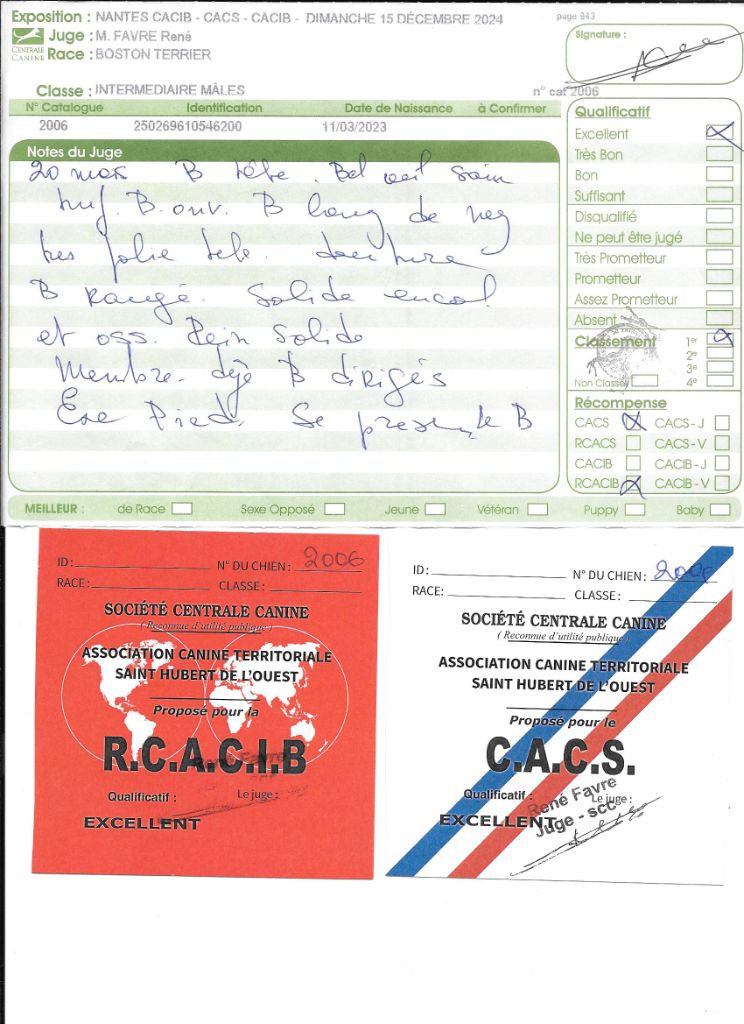 Exposition : NANTES CACIB - CACS - CACIB - DIMANCHE 15 DÉCEMBRE 2024
page 943
Juge : M. FAVRE René
CENTRALE CANINE
Race : BOSTON TERRIER
Signature :
Classe : INTERMEDIAIRE MÂLES
n° cat 2006
N° Catalogue Identification Date de Naissance à Confirmer
2006 250269610546200 11/03/2023
Notes du Juge
20 mois B tête. Bel oeil sain
B. ouv. B long de
très jolie tête. denture
B rangé. Solide encol.
et oss. Rein solide
Membre déjà B dirigés
Exc Pied. Se présente B
Qualificatif
Excellent
Très Bon
Bon
Suffisant
Disqualifié
Ne peut être jugé
Très Prometteur
Prometteur
Assez Prometteur
Absent
Classement 1er
2e
3e
Non Classé 4e
Récompense
CACS CACS - J
RCACS CACS - V
CACIB CACIB - J
RCACIB CACIB - V
MEILLEUR : de Race Sexe Opposé Jeune Vétéran Puppy Baby
ID: N° DU CHIEN: 2006
RACE: CLASSE:
SOCIÉTÉ CENTRALE CANINE
( Reconnue d'utilité publique )
ASSOCIATION CANINE TERRITORIALE
SAINT HUBERT DE L'OUEST
Proposé pour la
R.C.A.C.I.B
René Favre
Qualificatif : Le juge :
EXCELLENT
ID: N° DU CHIEN: 2006
RACE: CLASSE:
SOCIÉTÉ CENTRALE CANINE
( Reconnue d'utilité publique )
ASSOCIATION CANINE TERRITORIALE
SAINT HUBERT DE L'OUEST
Proposé pour le
C.A.C.S.
Qualificatif : Le juge :
René Favre
EXCELLENT
Juge - scc